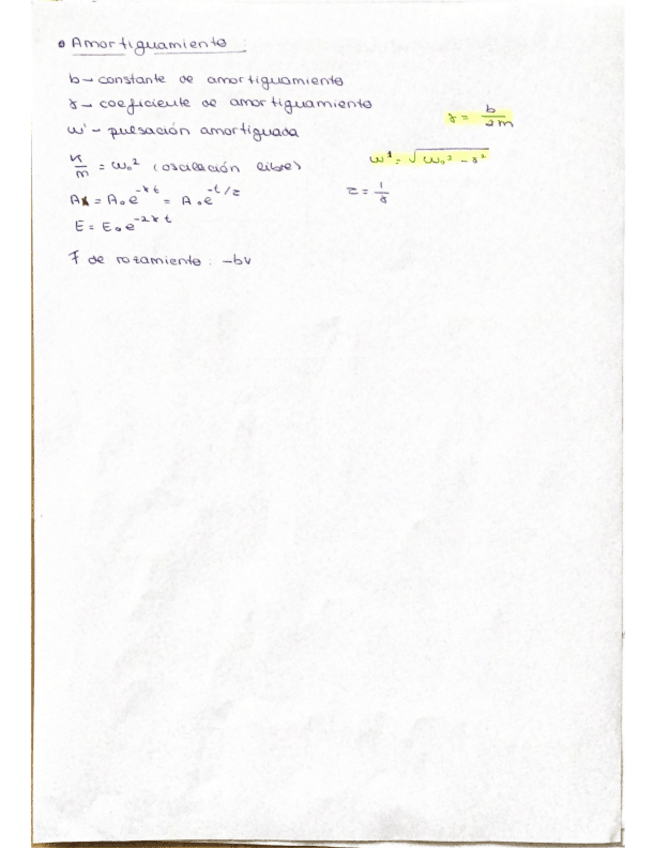 • Amortiguamiento :
b → constante de amortiguamiento
γ → coeficiente de amortiguamiento
γ = b / 2m
ω' → pulsación amortiguada
K/m = ω₀² (oscilación libre)
ω' = √(ω₀² - γ²)
A = A₀e^(-γt) = A₀e^(-t/τ)
τ = 1/γ
E = E₀e^(-2γt)
F de rozamiento : -bv